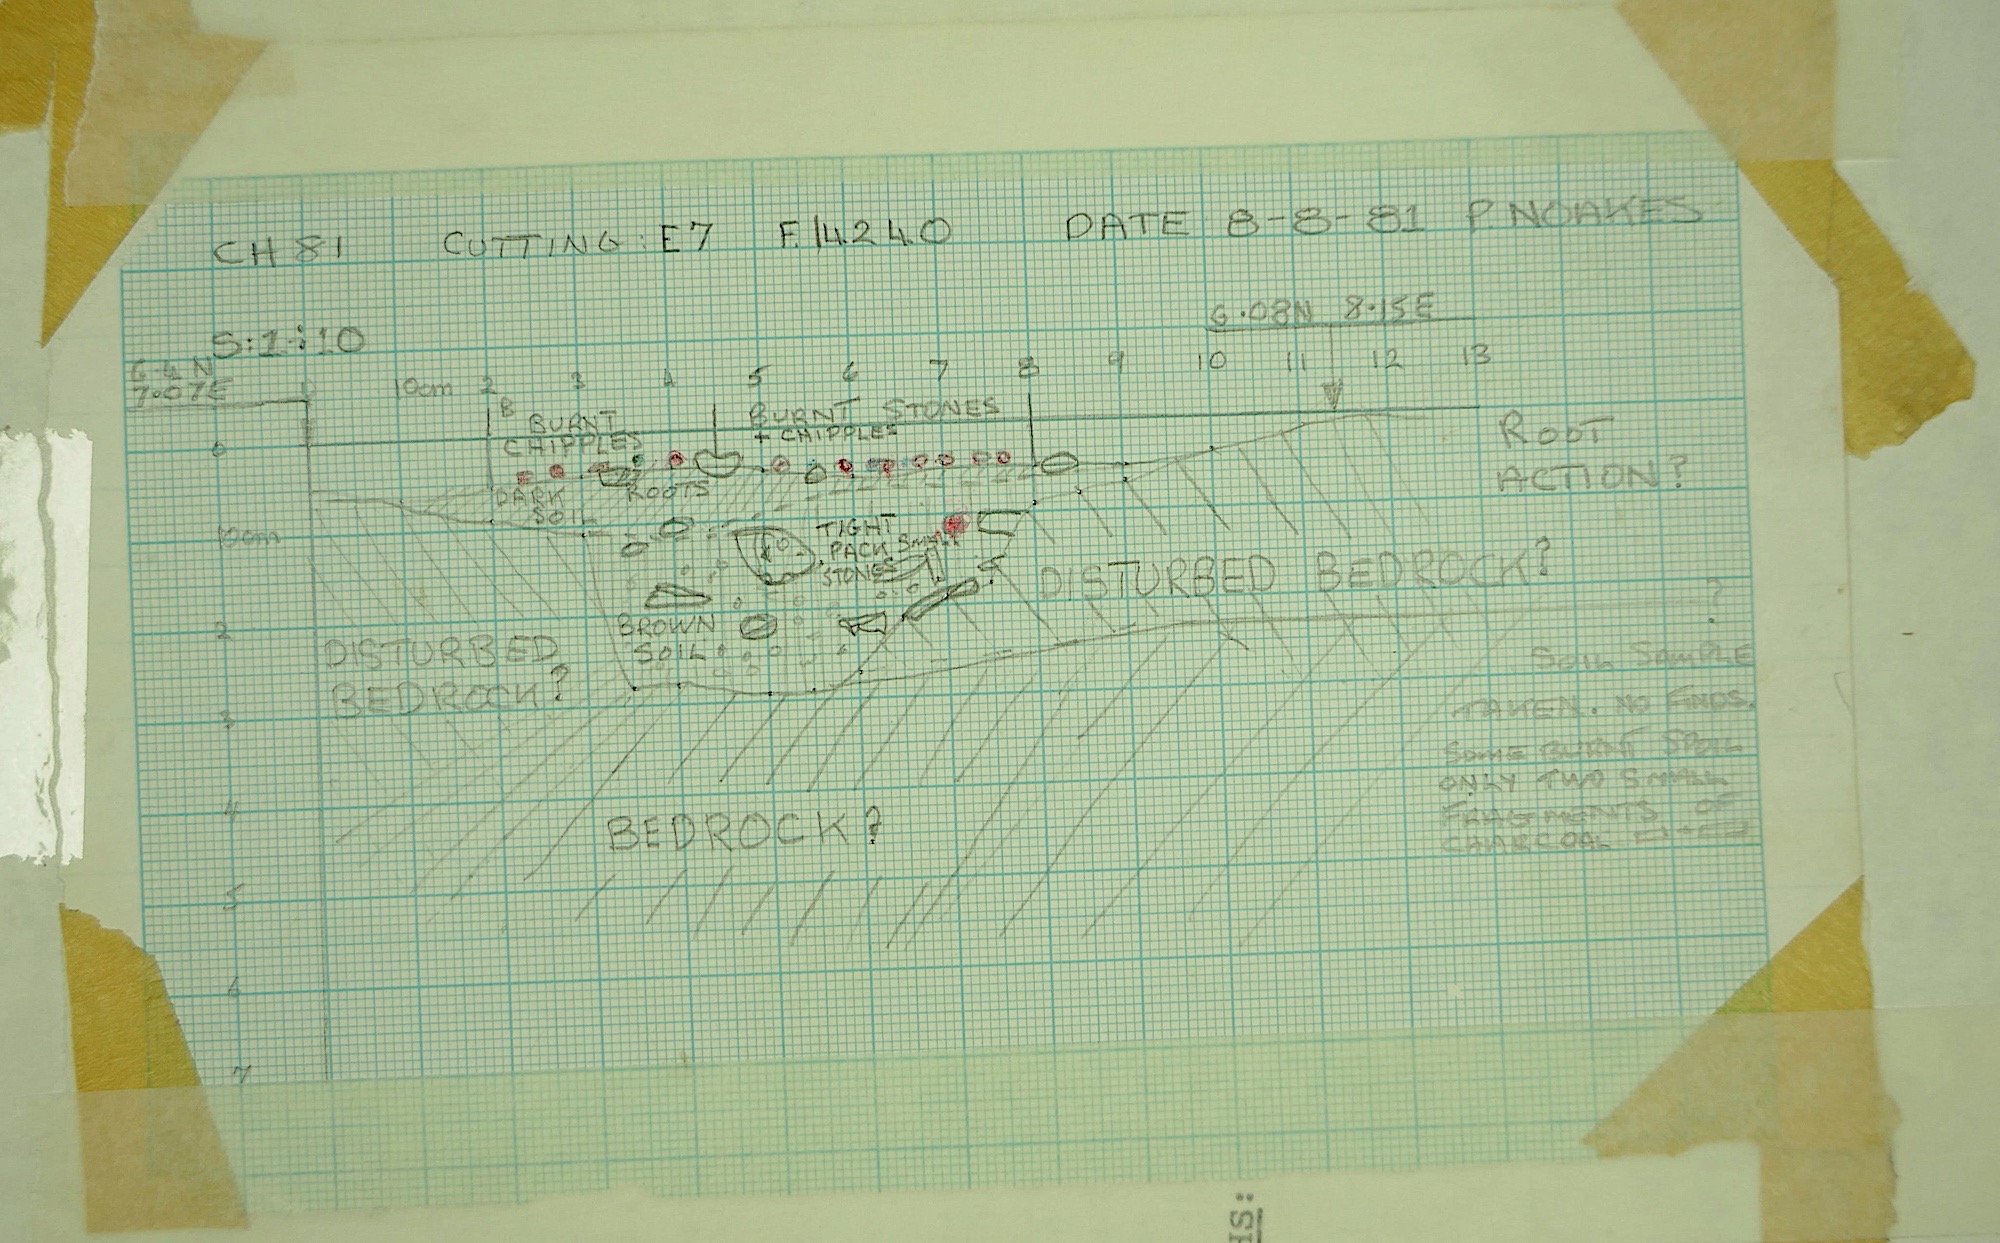 CH 81 CUTTING: E7 F.14240 DATE 8-8-81 P. NOAKES
S:1:10
6.08N 8.15E
6.4 N
7.07E
10cm 2 3 4 5 6 7 8 9 10 11 12 13
B
BURNT
CHIPPLES
BURNT STONES
+ CHIPPLES
ROOT
ACTION?
0
DARK
SOIL
ROOTS
10cm
TIGHT
PACK SMALL
STONES
DISTURBED BEDROCK?
?
2
BROWN
SOIL
DISTURBED
BEDROCK?
SOIL SAMPLE
TAKEN. NO FINDS.
3
SOME BURNT SOIL
ONLY TWO SMALL
FRAGMENTS OF
CHARCOAL
4
BEDROCK?
5
6
7
HS: